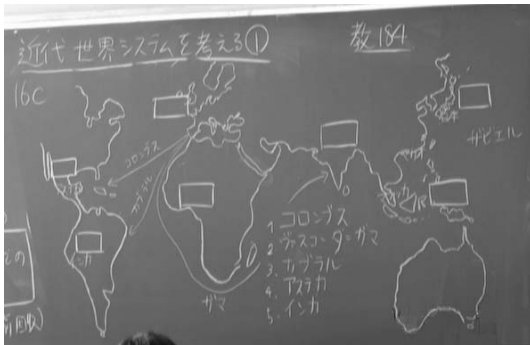 近代世界システムを考える①
教184
16C
コロンブス
カブラル
ザビエル
インカ
ガマ
1 コロンブス
2 ヴァスコ=ダ=ガマ
3. カブラル
4. アステカ
5. インカ